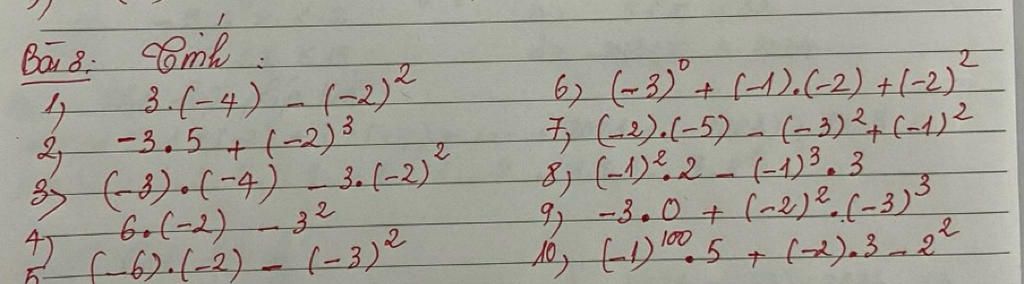 Bài 8: Tính:
1) 3.(-4) - (-2)²
2) -3.5 + (-2)³
3) (-3).(-4) - 3.(-2)²
4) 6.(-2) - 3²
5 (-6).(-2) - (-3)²
6) (-3)⁰ + (-1).(-2) + (-2)²
7) (-2).(-5) - (-3)² + (-1)²
8) (-1)².2 - (-1)³.3
9) -3.0 + (-2)².(-3)³
10) (-1)¹⁰⁰.5 + (-2).3 - 2²